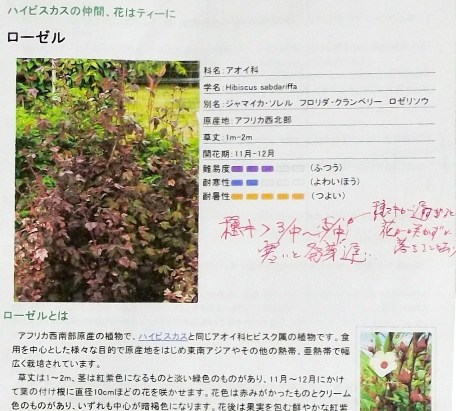 ハイビスカスの仲間、花はティーに
ローゼル
科名：アオイ科
学名：Hibiscus sabdariffa
別名：ジャマイカ・ソレル　フロリダ・クランベリー　ロゼリソウ
原産地：アフリカ西北部
草丈：1m-2m
開花期：11月-12月
難易度　（ふつう）
耐寒性　（よわいほう）
耐暑性　（つよい）
寒いと発芽遅
ローゼルとは
アフリカ西南部原産の植物で、ハイビスカスと同じアオイ科ヒビスク属の植物です。食
用を中心とした様々な目的で原産地をはじめ東南アジアやその他の熱帯、亜熱帯で幅
広く栽培されています。
草丈は1～2m、茎は紅紫色になるものと淡い緑色のものがあり、11月～12月にかけ
て葉の付け根に直径10cmほどの花を咲かせます。花色は赤みがかったものとクリーム
色のものがあり、いずれも中心が暗褐色になります。花後は果実を包む鮮やかな紅紫